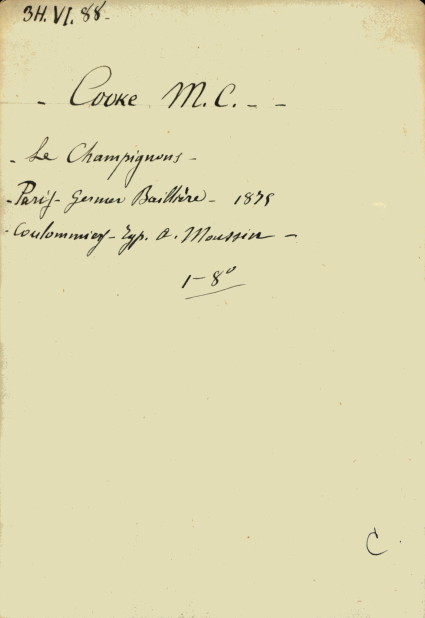 3H.VI.88-
- Cooke M. C. - -
- Le Champignons -
- Paris - Germer Baillière - 1875
- Coulommiers - Typ. A. Moussin -
1 - 8º
C.